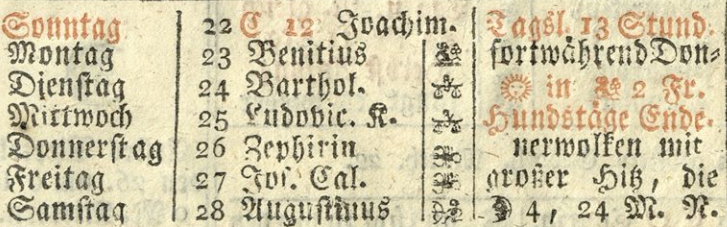 Sonntag 22 C 12 Joachim. Tagsl. 13 Stund.
Montag 23 Benitius fortwährend Don⸗
Dienſtag 24 Barthol. in 2 Fr.
Mittwoch 25 Ludovic. K. Hundstäge Ende.
Donnerſtag 26 Zephirin nerwolken mit
Freitag 27 Joſ. Cal. großer Hitz, die
Samſtag 28 Auguſtinus ☽ 4, 24 M. N.